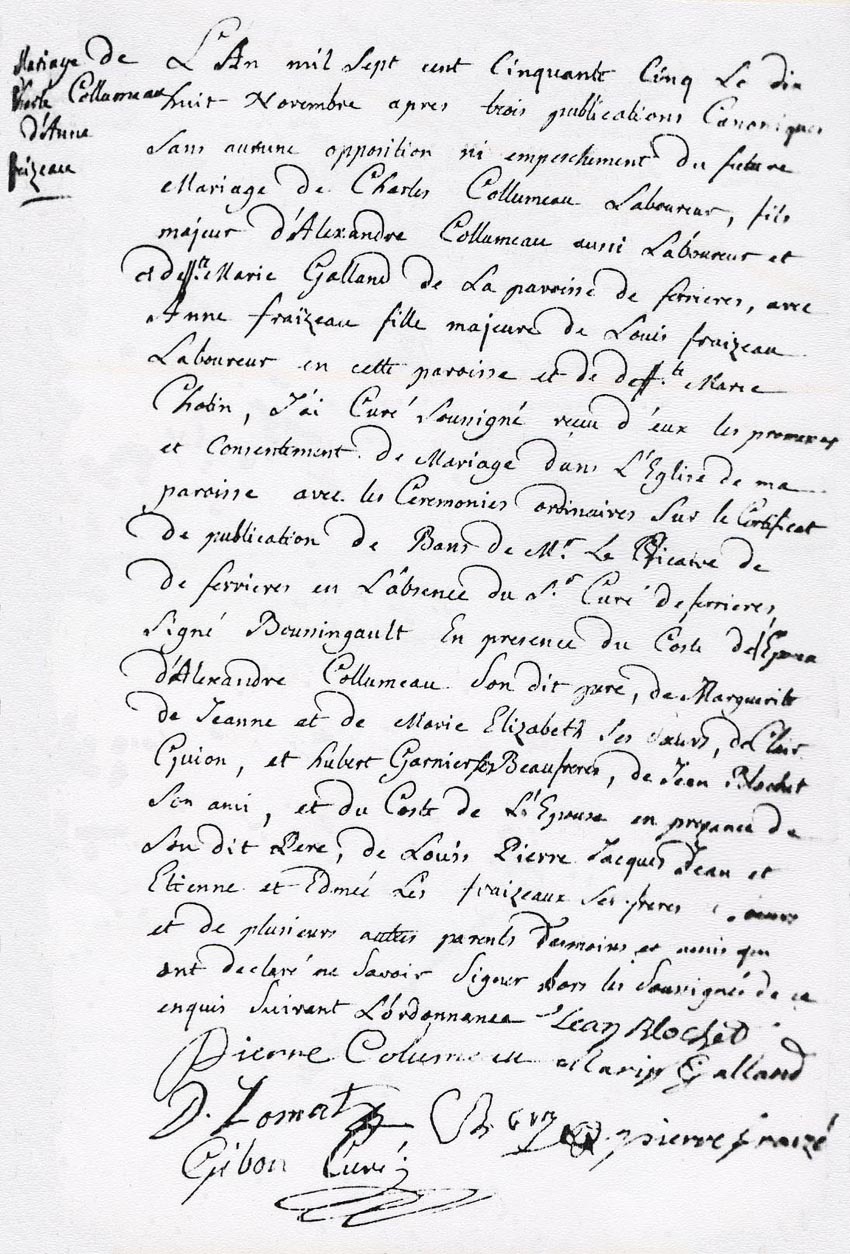 Mariage de
Charle Collumeau
d'Anne
fraizeau
L'An mil Sept cent Cinquante Cinq Le dix
huit Novembre apres trois publications Canoniques
Sans aucune opposition ni empeschement du future
Mariage de Charles Collumeau Laboureur, fils
majeur d'Alexandre Collumeau aussi Laboureur et
et deffte Marie Galland de La paroisse de ferrieres, avec
Anne fraizeau fille majeure de Louis fraizeau
Laboureur en cette paroisse et de deffte Marie
Chotin, J'ai Curé Sousigné recu d'eux les promesses
et Consentement de Mariage dans L'Eglise de ma
paroisse avec les Ceremonies ordinaires Sur le Certificat
de publication de Bans de Mr. Le Vicaire de
de ferrieres en L'absence du Sr. Curé de ferrieres,
Signé Boussingault En presence du Coste de l'Epoux
d'Alexandre Collumeau Son dit pere, de Marguerite
de Jeanne et de Marie Elizabeth Ses sœurs, de Clair
Guion, et hubert Garnier ses Beaufreres, de Jean Blochet
Son ami, et du Coste de L'Epouse en presance de
Son dit Pere, de Louis Pierre Jacques Jean et
Etienne et Edmée Les fraizeaux Ses freres sœurs
et de plusieurs autres parents temoins et amis qui
ont declaré ne Savoir Signer hors les Sousignés de ce
enquis Suivant L'ordonnance Jean Blochet
Pierre Columeau Marie Galland
D. Lomert pierre fraizé
Gibon Curé